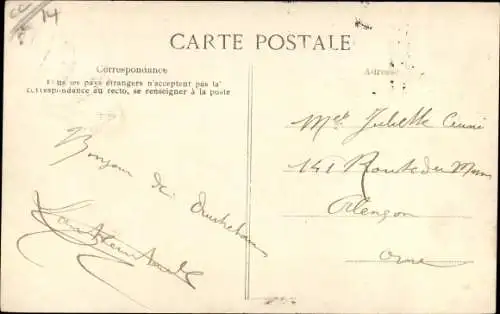 14
CARTE POSTALE
Correspondance
Tous les pays étrangers n'acceptent pas la
correspondance au recto, se renseigner à la poste
Adresse
Bonjour de Ouistreham
Melle Juliette
141 Route du Mans
Alençon
Orne